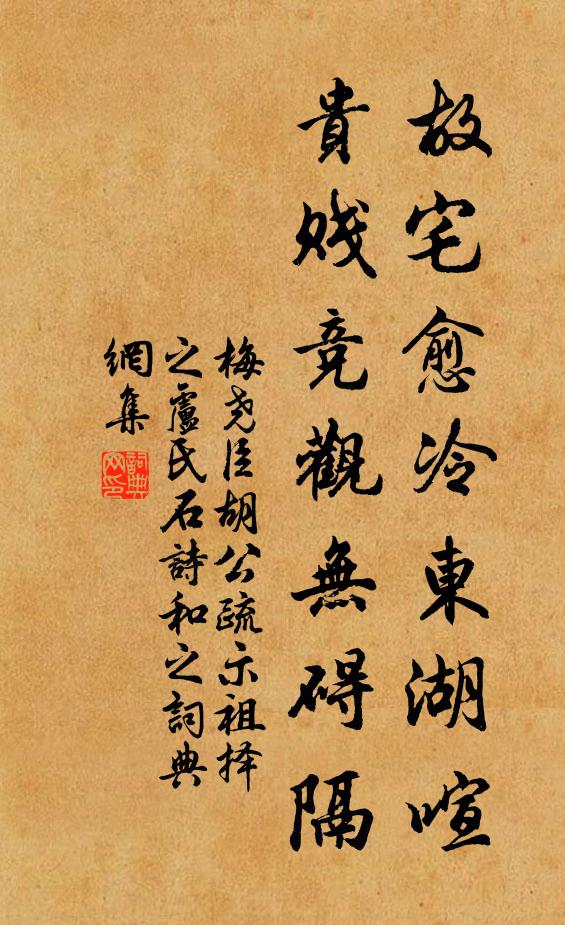 故宅愈冷東湖喧
貴賤競觀無碍隔
梅尧臣胡公疏示祖择
之盧氏石詩和之詞典
網集
詞典網印